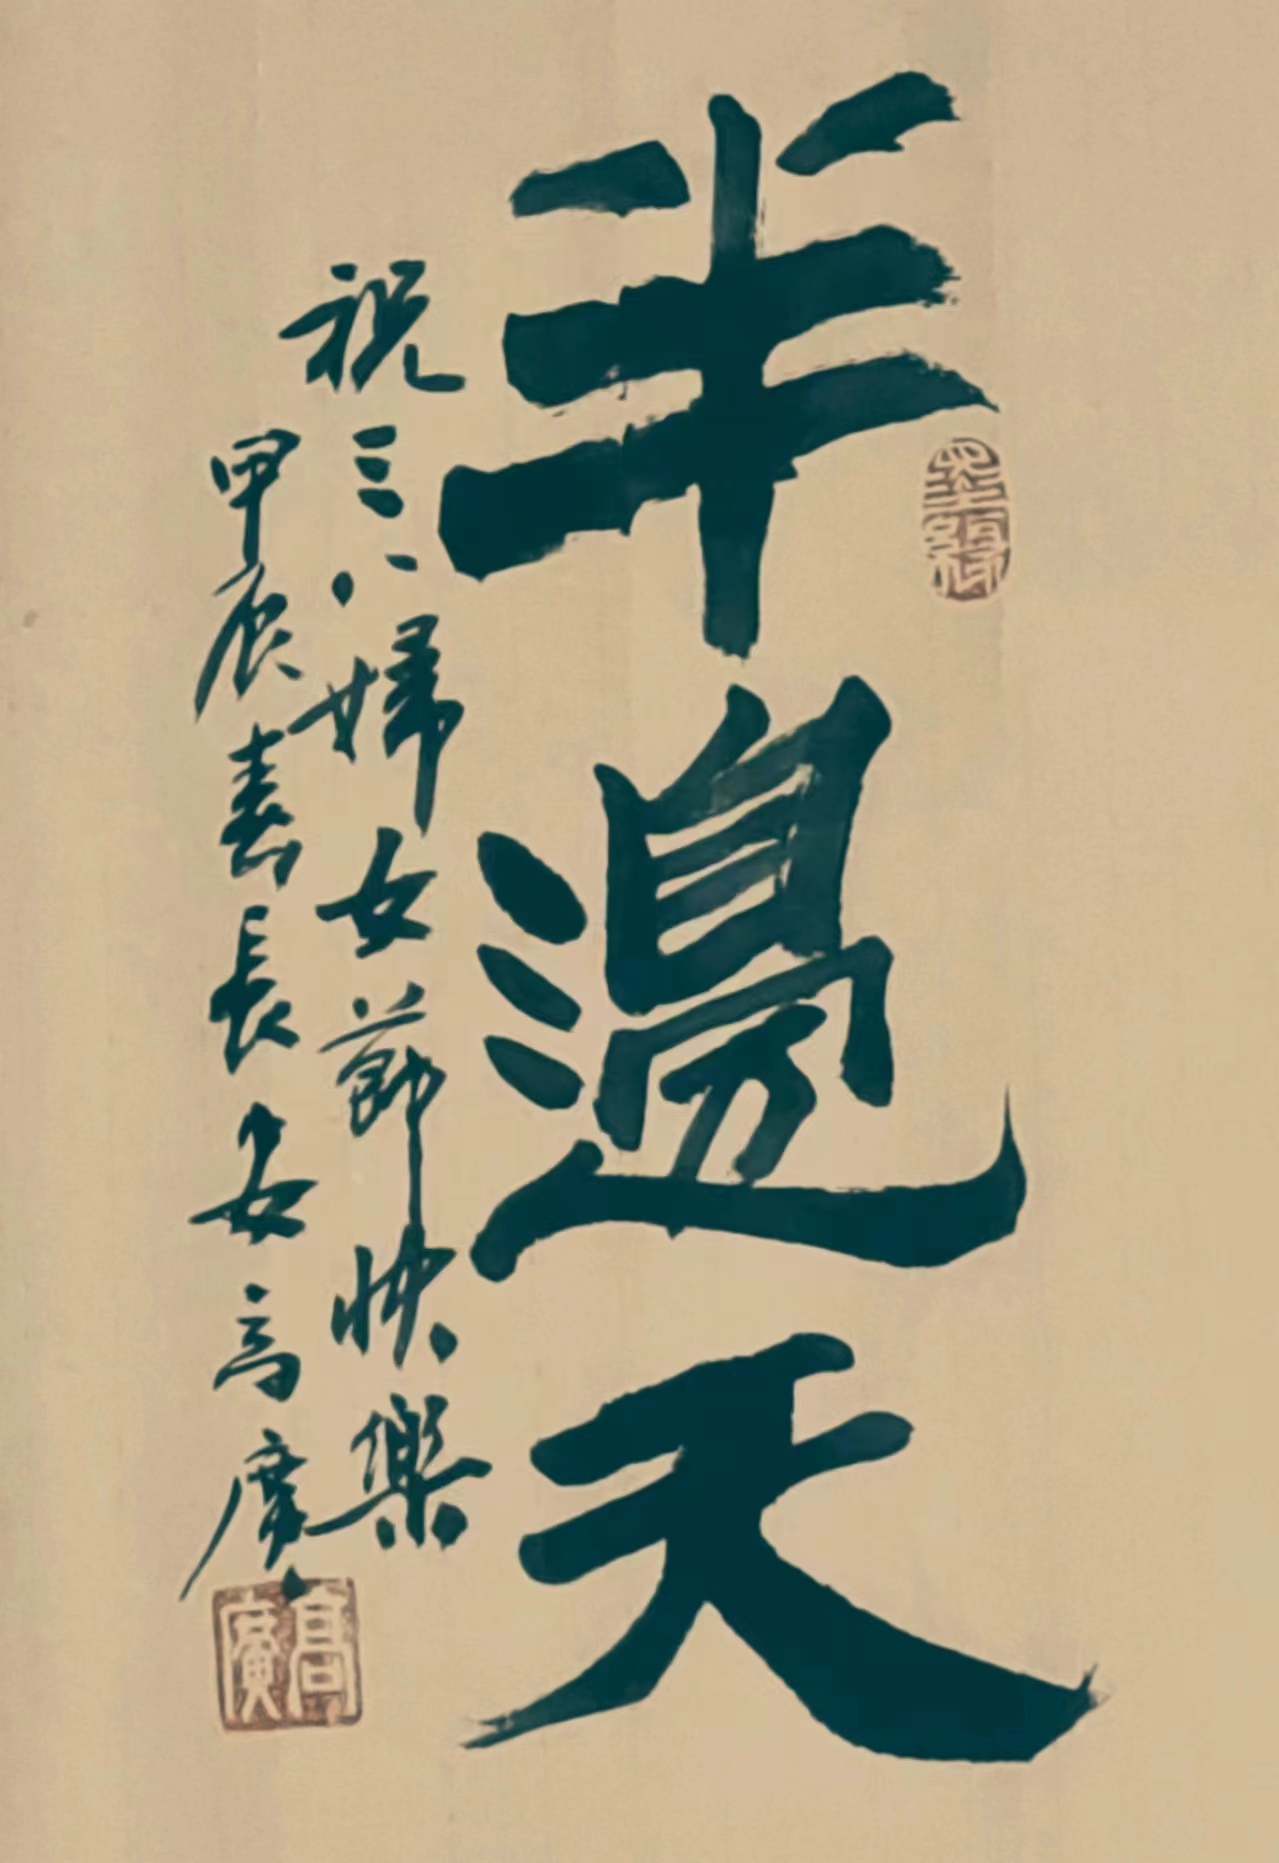 半邊天
祝三八婦女節快樂
甲辰春長安高廣
墨緣
高廣